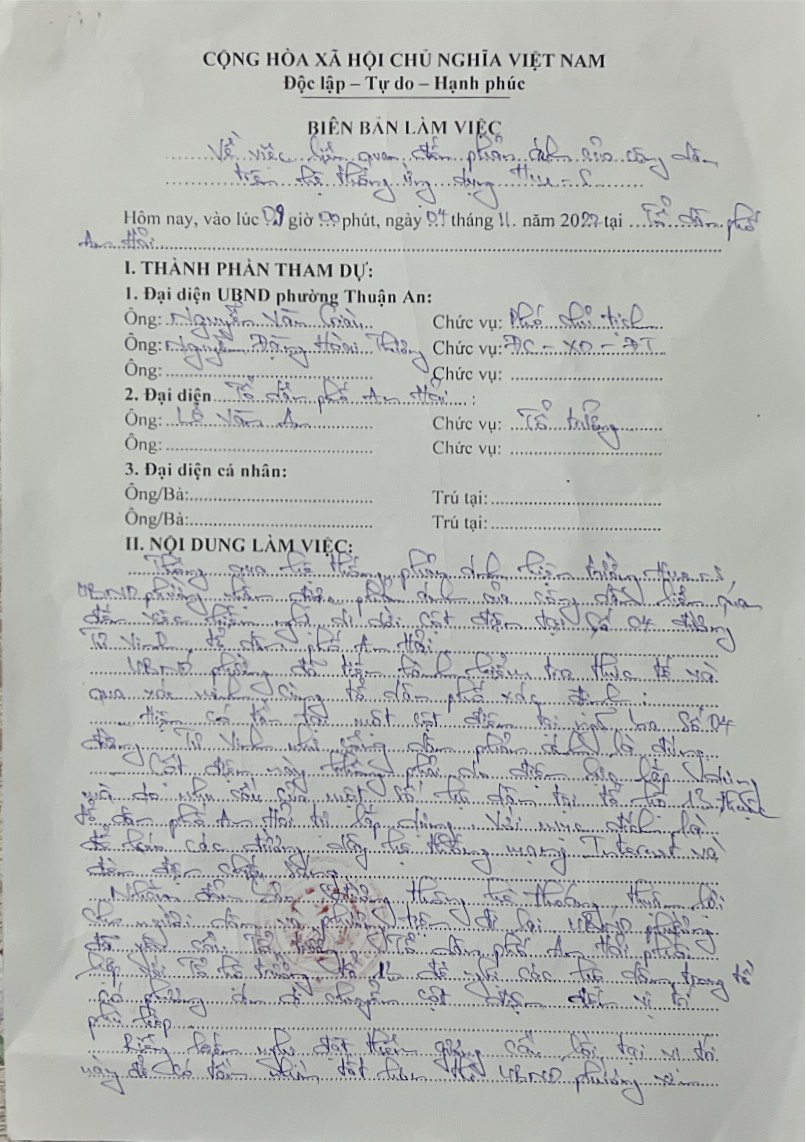 CỘNG HÒA XÃ HỘI CHỦ NGHĨA VIỆT NAM
Độc lập – Tự do – Hạnh phúc
BIÊN BẢN LÀM VIỆC
Về việc liên quan đến phản ánh của công dân
trên hệ thống ứng dụng Hue-S
Hôm nay, vào lúc 09 giờ 00 phút, ngày 04 tháng 11 năm 2022 tại Tổ dân phố
An Hải
I. THÀNH PHẦN THAM DỰ:
1. Đại diện UBND phường Thuận An:
Ông: Nguyễn Văn Chức vụ: Phó chủ tịch
Ông: Nguyễn Đặng Hoài Chức vụ: ĐC - XD - ĐT
Ông: Chức vụ:
2. Đại diện Tổ dân phố An Hải :
Ông: Lê Văn An Chức vụ: Tổ trưởng
Ông: Chức vụ:
3. Đại diện cá nhân:
Ông/Bà: Trú tại:
Ông/Bà: Trú tại:
II. NỘI DUNG LÀM VIỆC:
Thông qua hệ thống phản ánh hiện trường Hue-S,
UBND phường nhận được phản ánh của công dân liên quan
đến việc kiến nghị di dời cột điện tại Số 04 đường
Tư Vinh, tổ dân phố An Hải.
UBND phường đã tiến hành kiểm tra thực tế và
qua xác minh cùng tổ dân phố xác định:
Hiện có tồn tại một cột điện tại Số 04
đường Tư Vinh như công dân phản ánh là đúng.
Cột điện này không phải do điện lực lắp dựng
mà do nhu cầu của một số hộ dân tại tổ hộ 13 thuộc
tổ dân phố An Hải tự lắp dựng. Với mục đích là
để kéo các đường dây hệ thống mạng Internet và
đèn điện chiếu sáng.
Nhằm đảm cho đường thông hè thoáng, thuận lợi
cho người dân và phương tiện đi lại UBND phường
đã yêu cầu Tổ trưởng Tổ dân phố An Hải phối
hợp với Tổ hộ trưởng tổ 13 đề nghị các hộ dân trong tổ
có phương án di chuyển cột điện đến vị trí
phù hợp.
Riêng kiến nghị đặt thêm gương cầu lồi tại vị trí
này để có tầm nhìn tốt hơn thì UBND phường xin